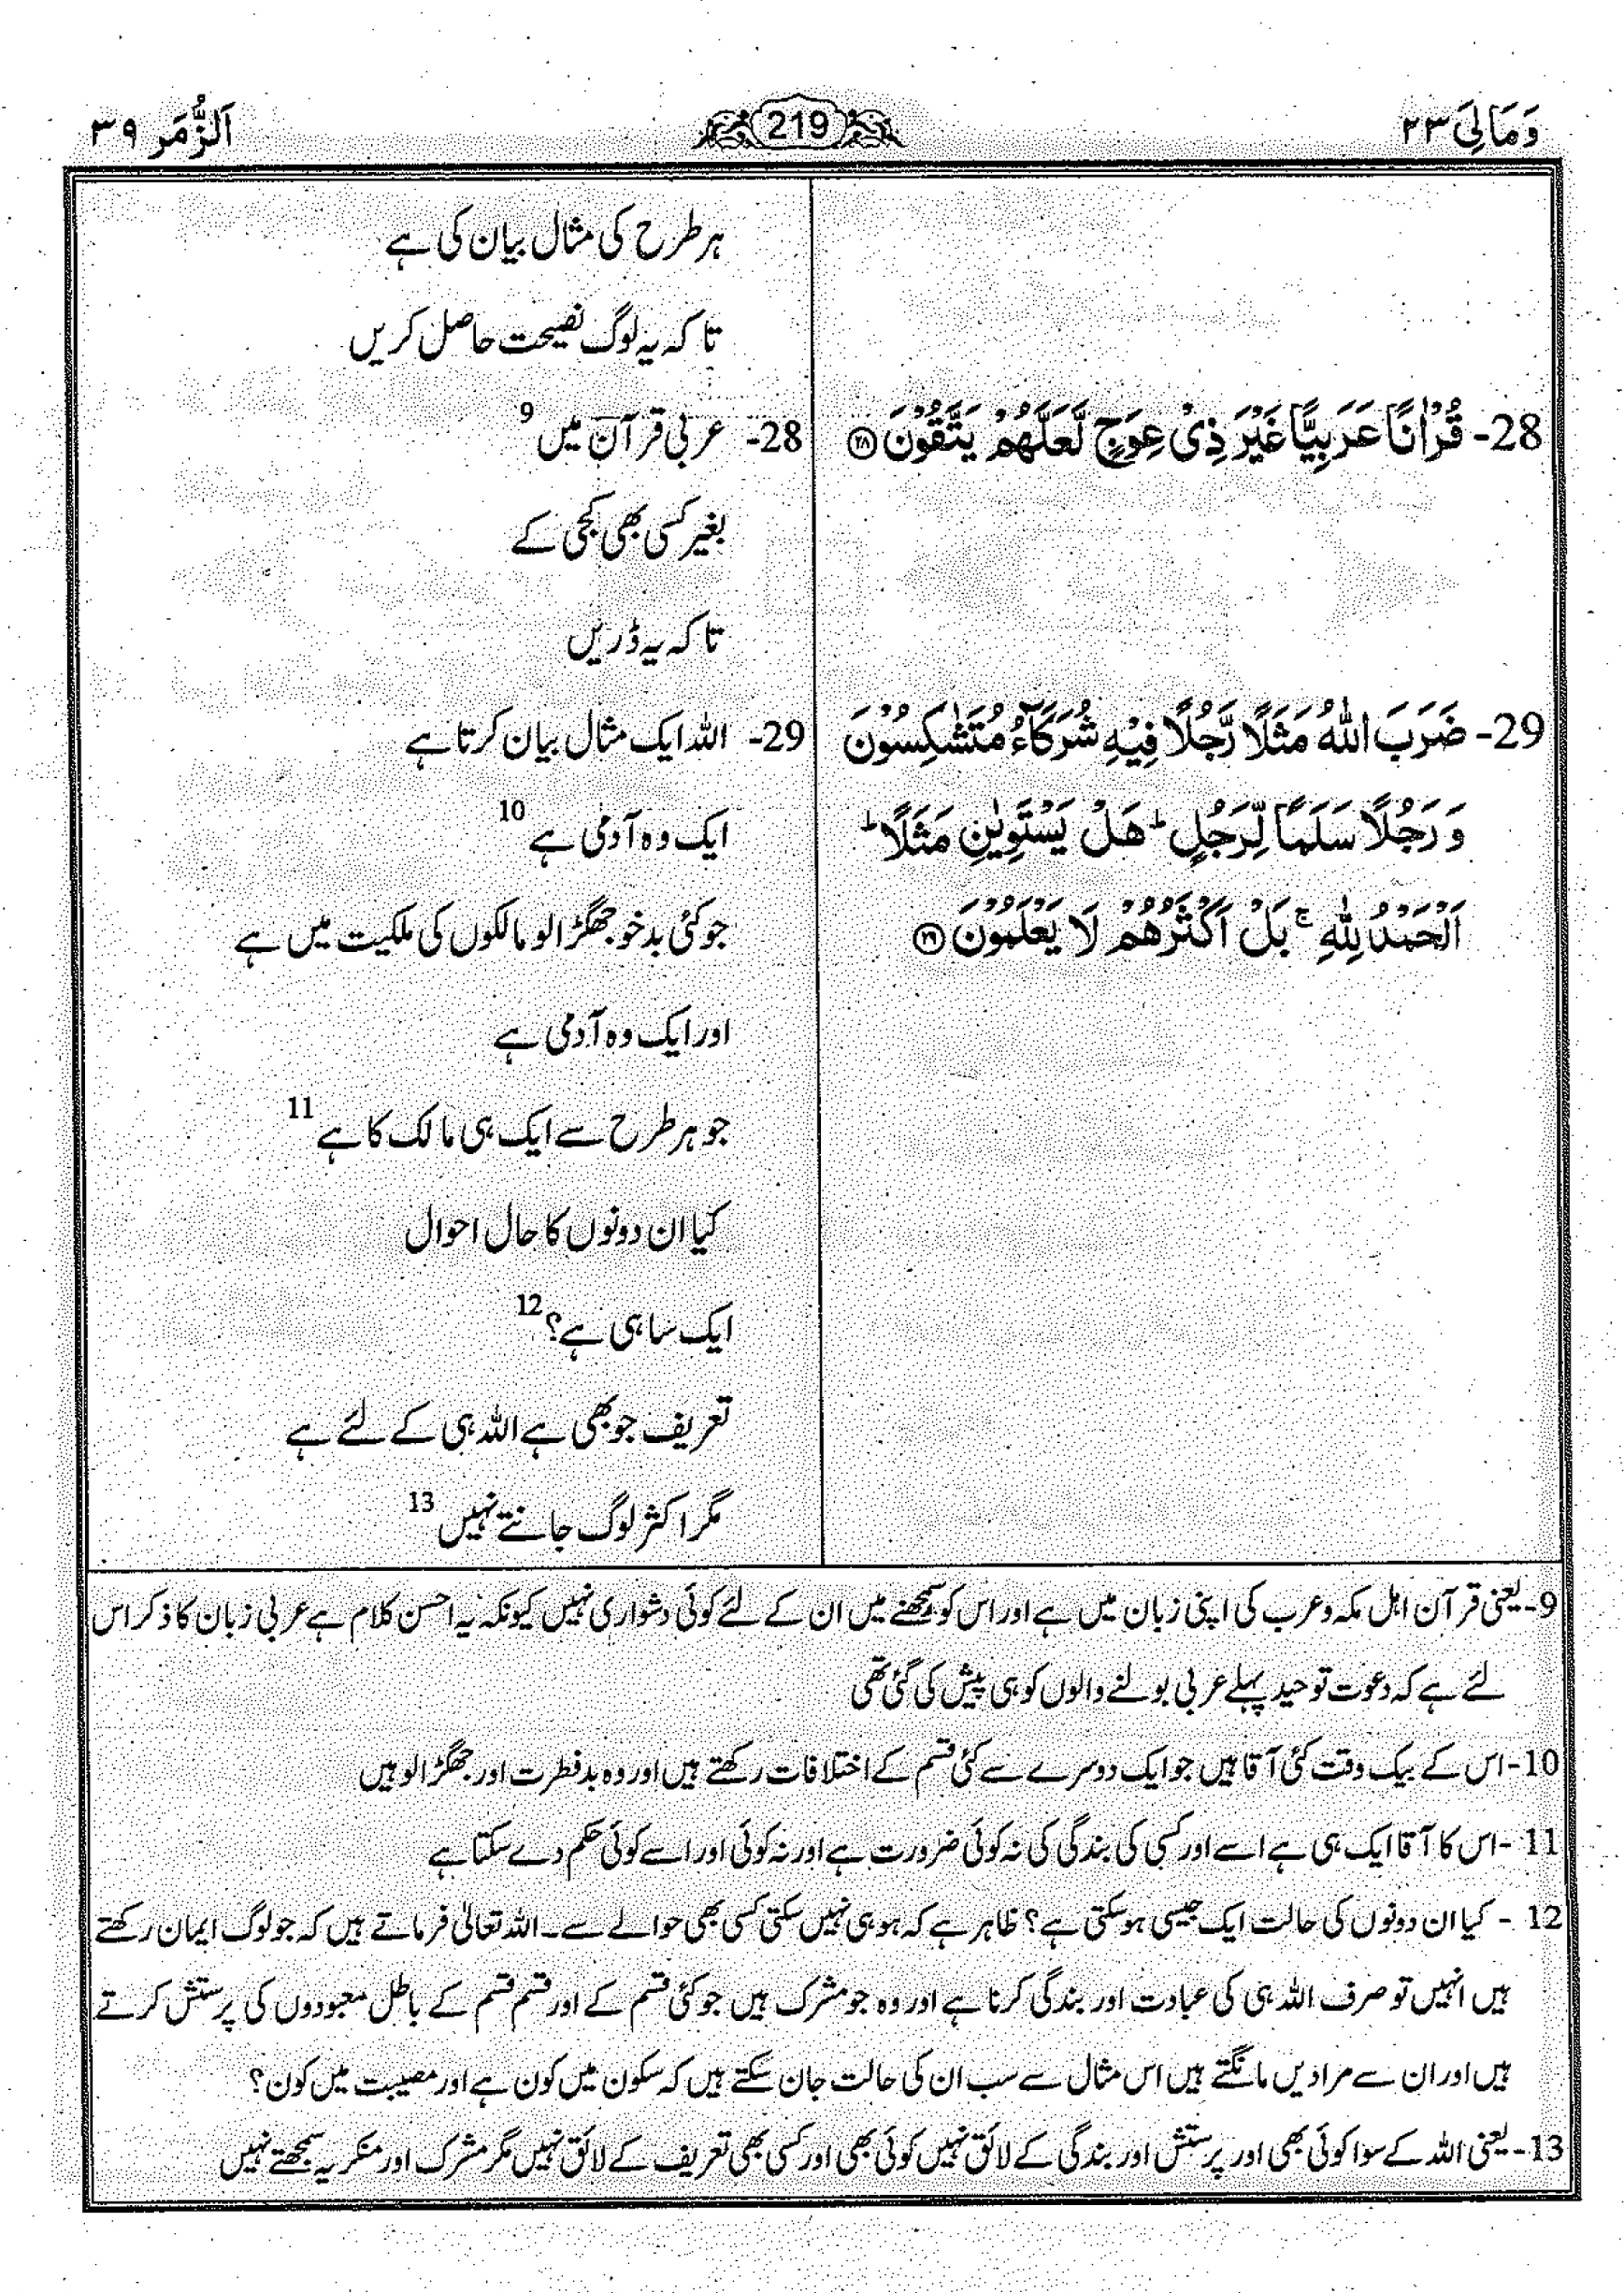 وَمَالِیَ ۲۳
219
اَلزُّمَر ۳۹
ہر طرح کی مثال بیان کی ہے
تاکہ یہ لوگ نصیحت حاصل کریں
28- قُرْاٰنًا عَرَبِيًّا غَيْرَ ذِيْ عِوَجٍ لَّعَلَّهُمْ يَتَّقُوْنَ ﴿۲۸﴾
28- عربی قرآن میں 9
بغیر کسی بھی کجی کے
تاکہ یہ ڈریں
29- ضَرَبَ اللّٰهُ مَثَلًا رَّجُلًا فِيْهِ شُرَكَآءُ مُتَشٰكِسُوْنَ
وَ رَجُلًا سَلَمًا لِّرَجُلٍ ؕ هَلْ يَسْتَوِيٰنِ مَثَلًا ؕ
اَلْحَمْدُ لِلّٰهِ ۚ بَلْ اَكْثَرُهُمْ لَا يَعْلَمُوْنَ ﴿۲۹﴾
29- اللہ ایک مثال بیان کرتا ہے
ایک وہ آدمی ہے 10
جو کئی بدخو جھگڑالو مالکوں کی ملکیت میں ہے
اور ایک وہ آدمی ہے
جو ہر طرح سے ایک ہی مالک کا ہے 11
کیا ان دونوں کا حال احوال
ایک سا ہی ہے؟ 12
تعریف جو بھی ہے اللہ ہی کے لئے ہے
مگر اکثر لوگ جانتے نہیں 13
9- یعنی قرآن اہل مکہ و عرب کی اپنی زبان میں ہے اور اس کو سمجھنے میں ان کے لئے کوئی دشواری نہیں کیونکہ یہ احسن کلام ہے عربی زبان کا ذکر اس
لئے ہے کہ دعوت توحید پہلے عربی بولنے والوں کو ہی پیش کی گئی تھی
10- اس کے بیک وقت کئی آقا ہیں جو ایک دوسرے سے کئی قسم کے اختلافات رکھتے ہیں اور وہ بدفطرت اور جھگڑالو ہیں
11- اس کا آقا ایک ہی ہے اسے اور کسی کی بندگی کی نہ کوئی ضرورت ہے اور نہ کوئی اور اسے کوئی حکم دے سکتا ہے
12- کیا ان دونوں کی حالت ایک جیسی ہو سکتی ہے؟ ظاہر ہے کہ ہو ہی نہیں سکتی کسی بھی حوالے سے۔ اللہ تعالیٰ فرماتے ہیں کہ جو لوگ ایمان رکھتے
ہیں انہیں تو صرف اللہ ہی کی عبادت اور بندگی کرنا ہے اور وہ جو مشرک ہیں جو کئی قسم کے اور قسم قسم کے باطل معبودوں کی پرستش کرتے
ہیں اور ان سے مرادیں مانگتے ہیں اس مثال سے سب ان کی حالت جان سکتے ہیں کہ سکون میں کون ہے اور مصیبت میں کون؟
13- یعنی اللہ کے سوا کوئی بھی اور پرستش اور بندگی کے لائق نہیں کوئی بھی اور کسی بھی تعریف کے لائق نہیں مگر مشرک اور منکر یہ سمجھتے نہیں